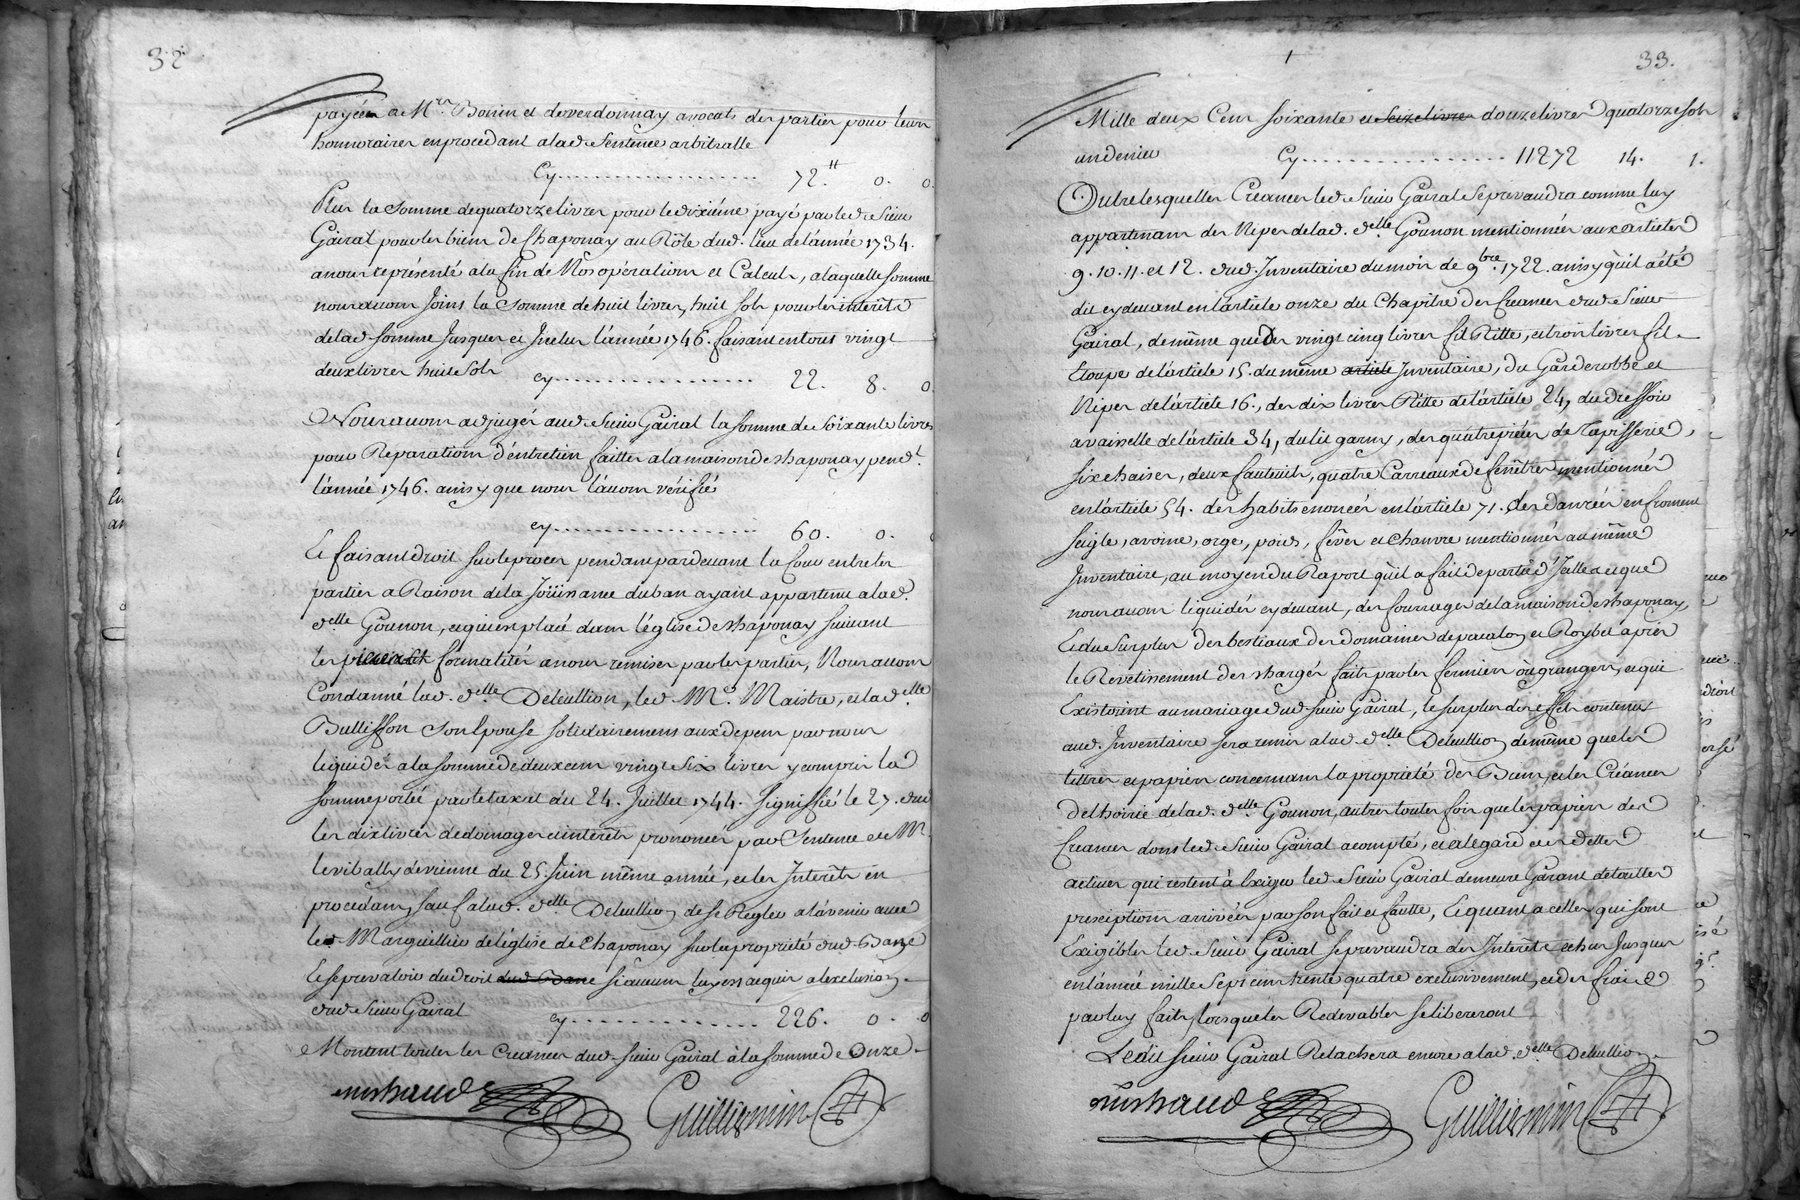 32
payées a M.rs Bonin et deverdonnay avocats des parties pour leurs
honnoraires en procedant a lad. Sentence arbitralle
Cy.................... 72.# 0. 0.
Plus la Somme de quatorze livres pour le dixiéme payé par led. Sieur
Gairal pour les biens de Chaponay au Rôle dud. lieu de l'année 1734.
a nous représenté a la fin de Nos opérations et Calculs, a laquelle somme
nous avons Joins la Somme de huit livres, huit sols pour les interêts
de lad. somme Jusques et Inclus l'année 1746. faisant en tout vingt
deux livres huit Sols cy.................... 22. 8. 0
Nous avons adjugés aud. Sieur Gairal la somme de Soixante livres
pour Reparations d'éntretien faittes a la maison de chaponay pend.t
l'année 1746. ainsy que nous l'avons vérifié
cy.................... 60. 0.
Et faisant droit sur le procés pendant pardevant la Cour entre les
parties a Raison de la Joüissance du ban ayant appartenu a lad.
d.elle Gounon, et qui est placé dans l'église de chaponay suivant
les formalités a nous remises par les parties, Nous avons
Condanné lad. d.elle Deleullion, led. M.e Maistre, et lad. d.elle
Bullisson Son Epouse solidairement aux depens par nous
liquidés a la somme de deux cens vingt Six livres y compris la
somme portée par le taxat du 24. Juillet 1744. signiffié le 27. dud.
les dix livres de domages et interêts prononcés par Sentence de M.
le vibally de vienne du 25. Juin même année, et les Interêts en
procedans, sauf a lad. d.elle Deleullion de se Regler a l'avenir avec
led. Marguillier de l'église de Chaponay sur la propriété dud. Banc
et se prevaloir du droit dud. Banc si aucun luy est acquis a l'exclusion
dud. Sieur Gairal cy.................... 226. 0. 0
Montent toutes les Creances dud. sieur Gairal à la somme de Onze
Guilliermin
33.
Mille deux Cens soixante et Seize livres douze livres quatorze sols
un denier Cy.................... 11272 14. 1.
Outre lesquelles Creances led. Sieur Gairal se prevaudra comme luy
appartenans des Nipes de lad. d.elle Gounon mentionnées aux articles
9. 10. 11. et 12. dud. Inventaire du mois de 9.bre 1722. ainsy qu'il a été
dit cy devant en l'article onze du Chapitre des Creances dud. Sieur
Gairal, de même que des vingt cinq livres fil Ritte, et trois livres fil
Etoupe de l'article 15. du même article Inventaire, du Garderobbe et
Nipes de l'article 16., des dix livres Ritte de l'article 24, du dressoir
a vaisselle de l'article 34, du lit garny, des quatre pièces de Tapisserie,
six chaises, deux fauteuils, quatre Carreaux de fenêtres mentionnés
en l'article 54. des habits enoncés en l'article 71. des danrées en froment
seigle, avoine, orge, pois, féves et chanvre mentionnés au même
Inventaire, au moyen du Raport qu'il a fait de partie d'Icelles et que
nous avons liquidés cy devant, des fourrages de la maison de chaponay,
et du Surplus des bestiaux des domaines de pacalon et Roybet après
le Revetissement des chargés faits par les fermiers ou grangers, et qui
Existoient au mariage dud. sieur Gairal, le surplus des effets contenus
aud. Inventaire sera remis a lad. d.elle Deleullion de même que les
tittres et papiers concernans la propriété des Biens, et les Créances
de l'hoirie de lad. d.elle Gounon, autres toutes fois que les papiers des
Creances dont led. Sieur Gairal a compté, et a l'egard des dettes
actives qui restent à Exiger led. Sieur Gairal demeure Garant de touttes
prescriptions arrivées par son fait et fautte, Et quant a celles qui sont
Exigibles led. Sieur Gairal se prevaudra des Interêts echus Jusques
en l'année mille Sept cens trente quatre exclusivement, et des frais
par luy faits, lorsque les Redevables se libereront
Ledit sieur Gairal Relachera encore a lad. d.elle Deleullion
Guilliermin